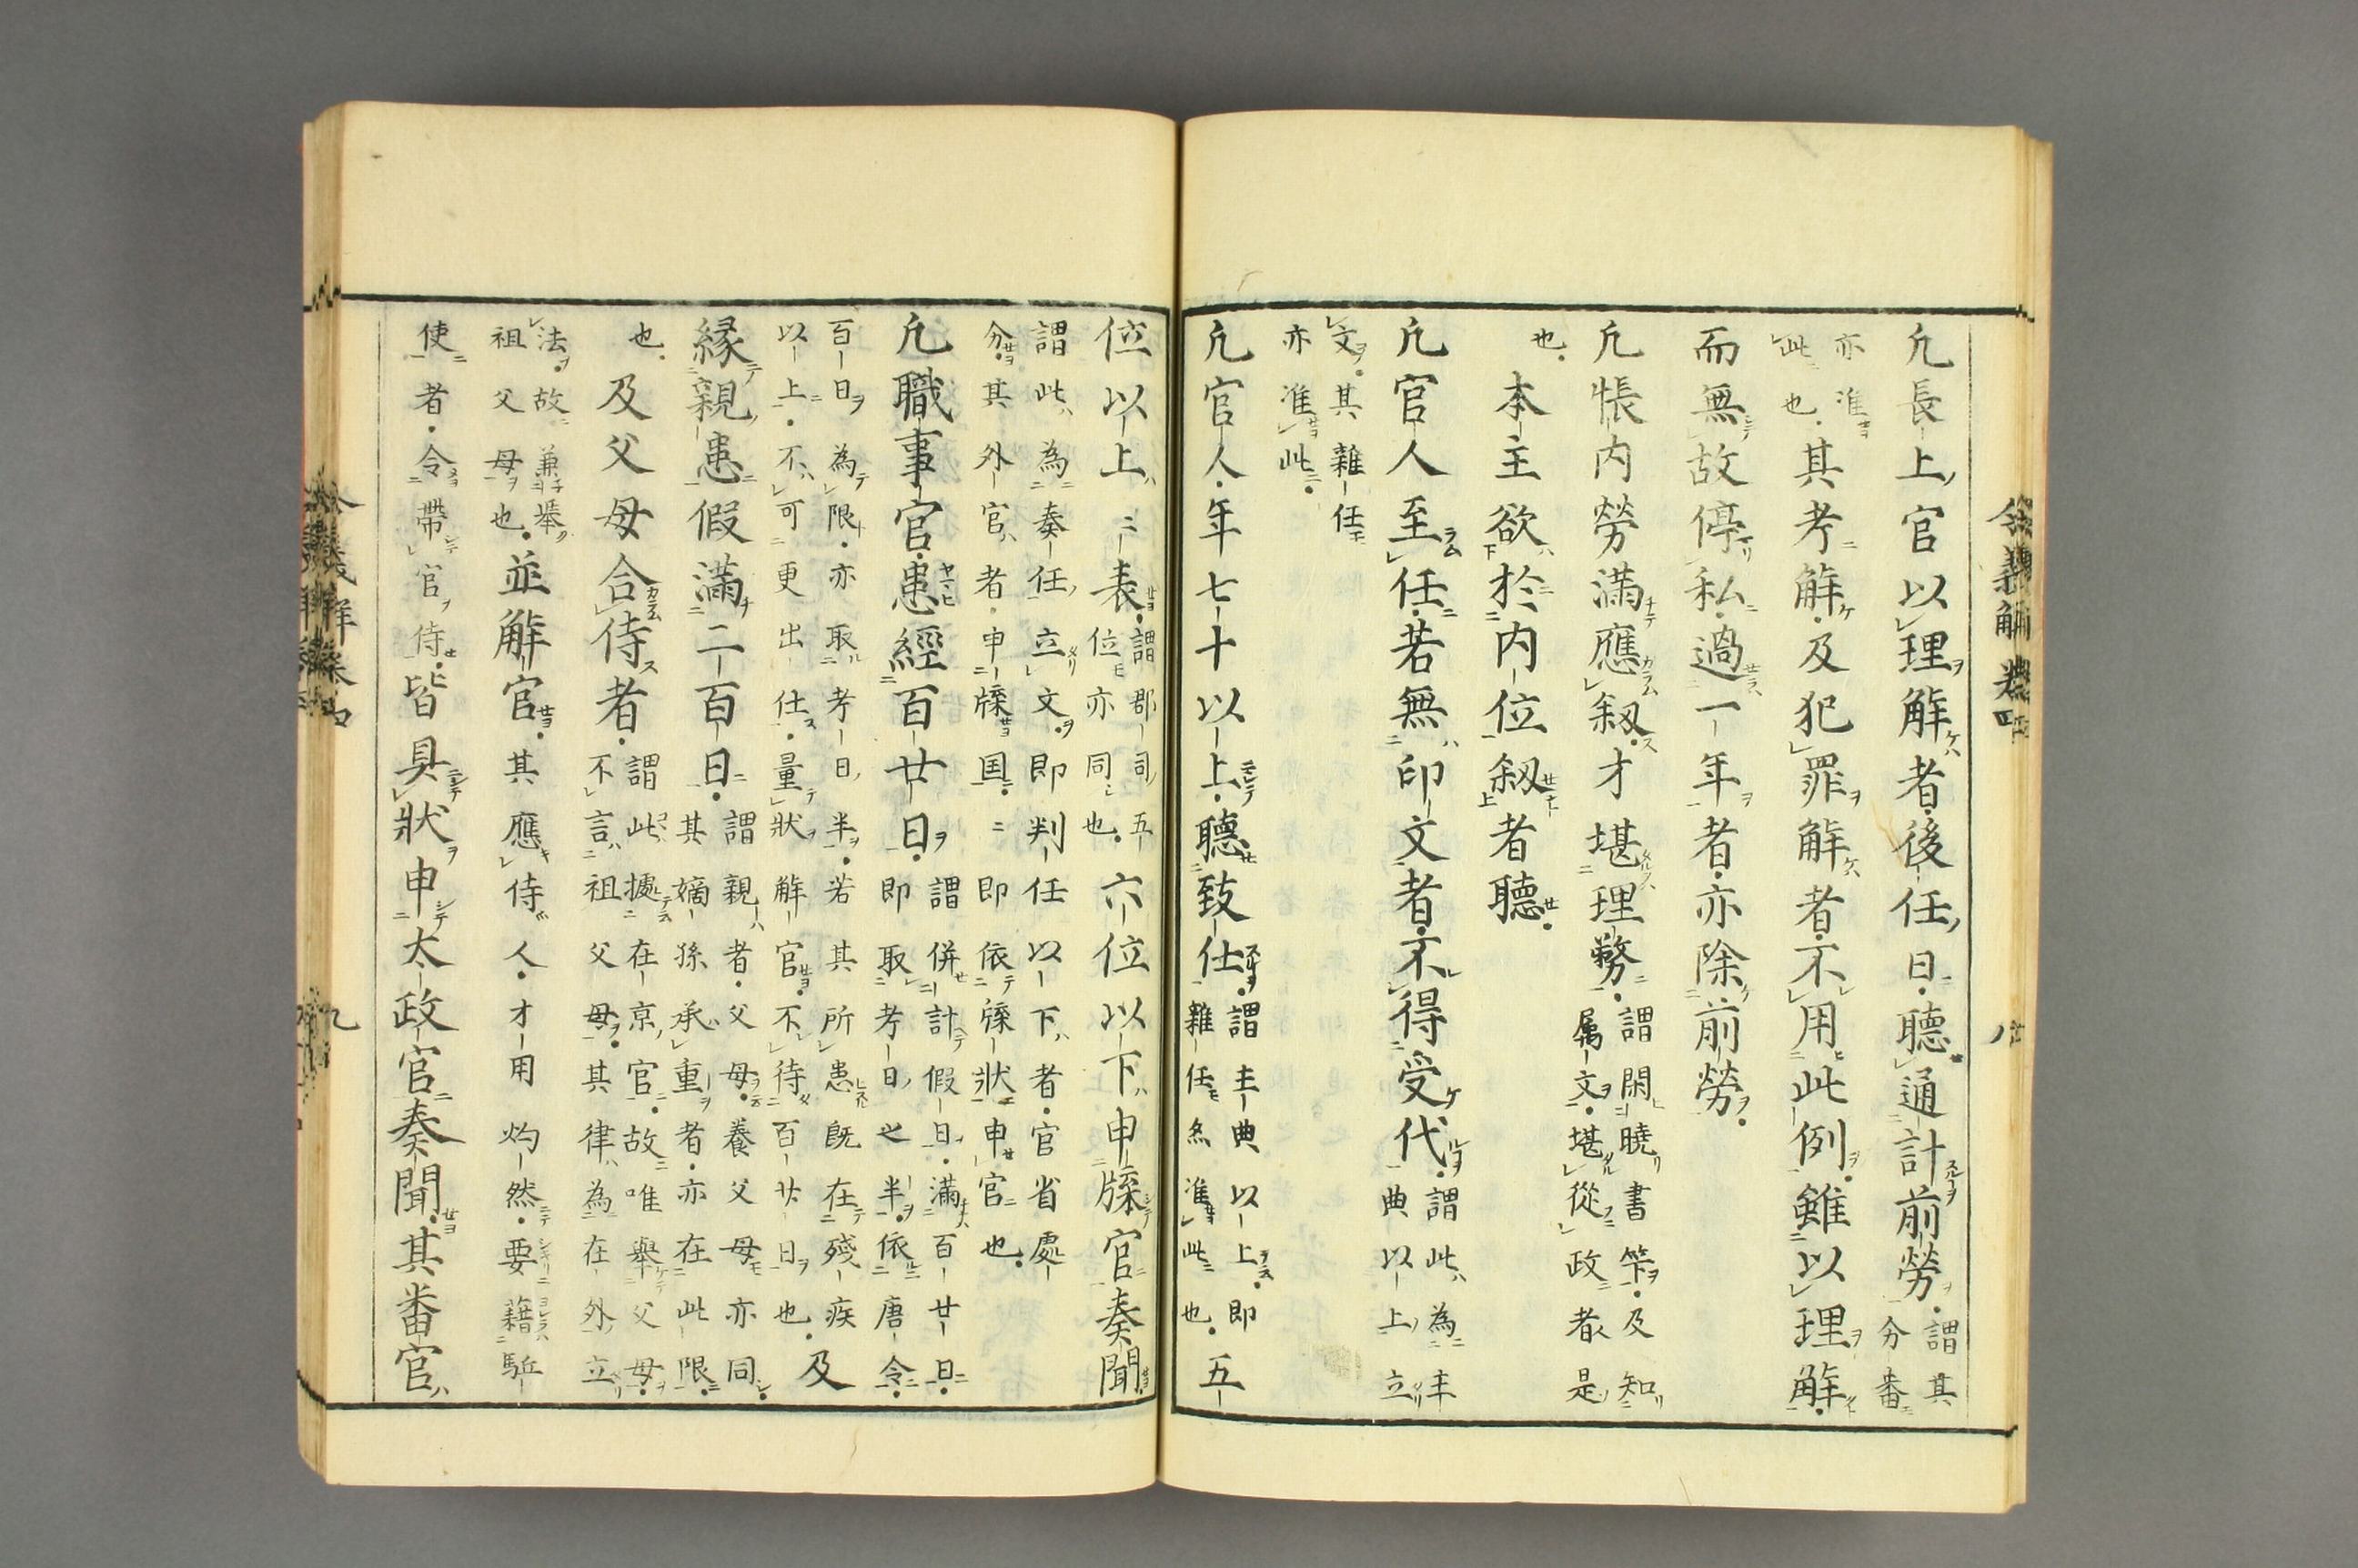 令義解卷四 八
凡長上官以理解者後任日聽通計前勞謂其分番
亦准此也其考解及犯罪解者不用此例雖以理解
而無故停私過一年者亦除前勞
凡帳内勞滿應叙才堪理務謂閑曉書筭及知属文堪從政者是
也本主欲於内位叙者聽
凡官人至任若無印文者不得受代謂此為主典以上立
文其雜任亦准此
凡官人年七十以上聽致仕謂主典以上即雜任亦准此也五
位以上ゝ表謂郡司五位亦同也六位以下申牒官奏聞
謂此為奏任立文即判任以下者官省處分其外官者申牒国ゝ即依牒狀申官也
凡職事官患經百廿日謂併計假日滿百廿日即取考日之半依唐令
百日為限亦取考日半若其所患既在殘疾以上不可更出仕量狀解官不待百廿日也及
縁親患假滿二百日謂親者父母養父母亦同其嫡孫承重者亦在此限
也及父母合侍者謂此據在京官故唯舉父母不言祖父母其律為在外立
法故兼舉祖父母也並解官其應侍人才用灼然要藉駈
使者令帶官侍皆具狀申太政官奏聞其番官
令義解卷四 九